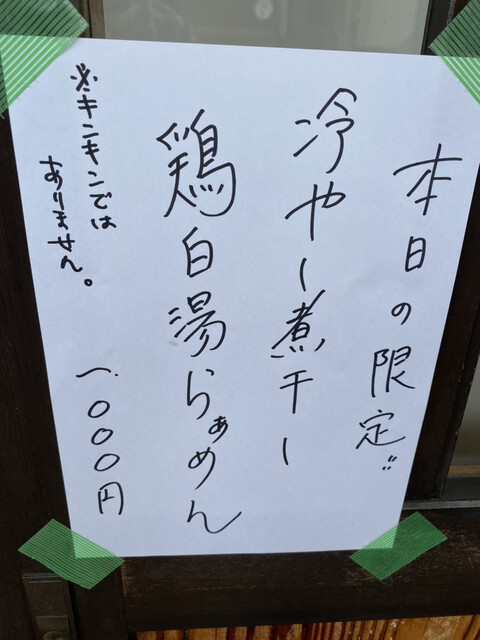 本日の限定!!
冷やし煮干し
鶏白湯らぁめん
一.〇〇〇円
※キンキンでは
ありません。